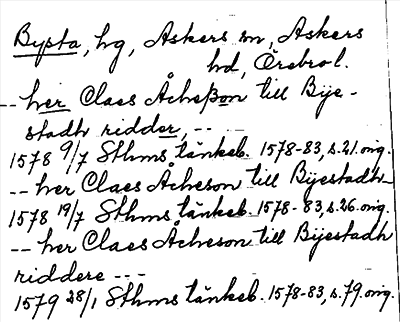 Bysta, hg, Askers sn, Askers
hd, Örebro l.
-- her Claes Åcheßon till Bije-
stadh ridder, --
1578 9/7 Sthms tänkeb. 1578-83, s.21. orig.
-- her Claes Åcheson till Bijestadh
1578 19/7 Sthms tänkeb. 1578-83, s.26. orig.
-- her Claes Åcheson till Bijestadh
riddere ---
1579 28/1 Sthms tänkeb. 1578-83, s.79. orig.